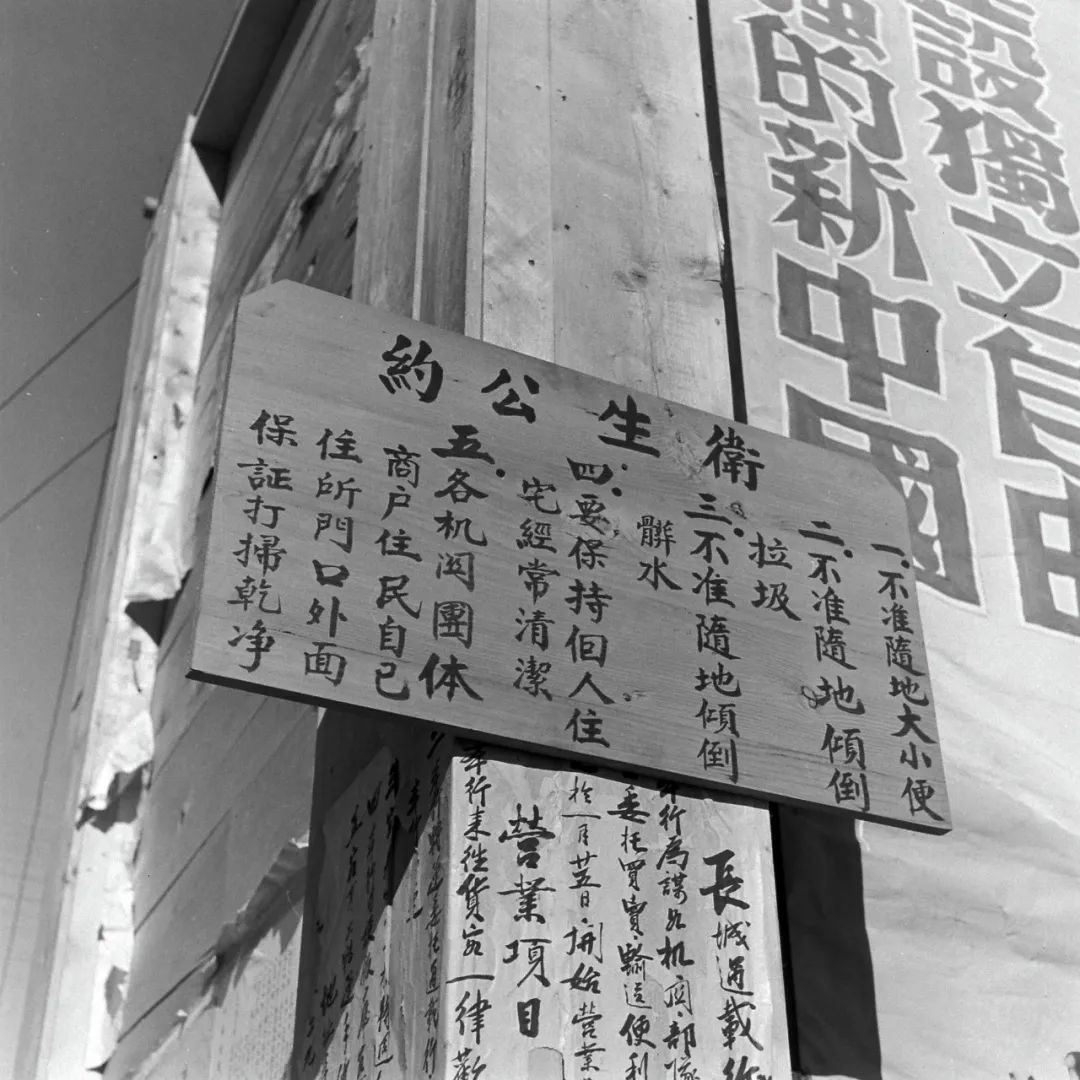 設獨立自由
的新中國
衛生公約
一.不准隨地大小便
二.不准隨地傾倒
垃圾
三.不准隨地傾倒
髒水
四.要保持佪人住
宅經常清潔
五.各机関團体
商户住民自己
住所門口外面
保証打掃乾净
長城過載
行為謀各机関部隊
委托買賣輸運便利
於一月廿五日開始營業
營業項目
行来往貨客一律歡